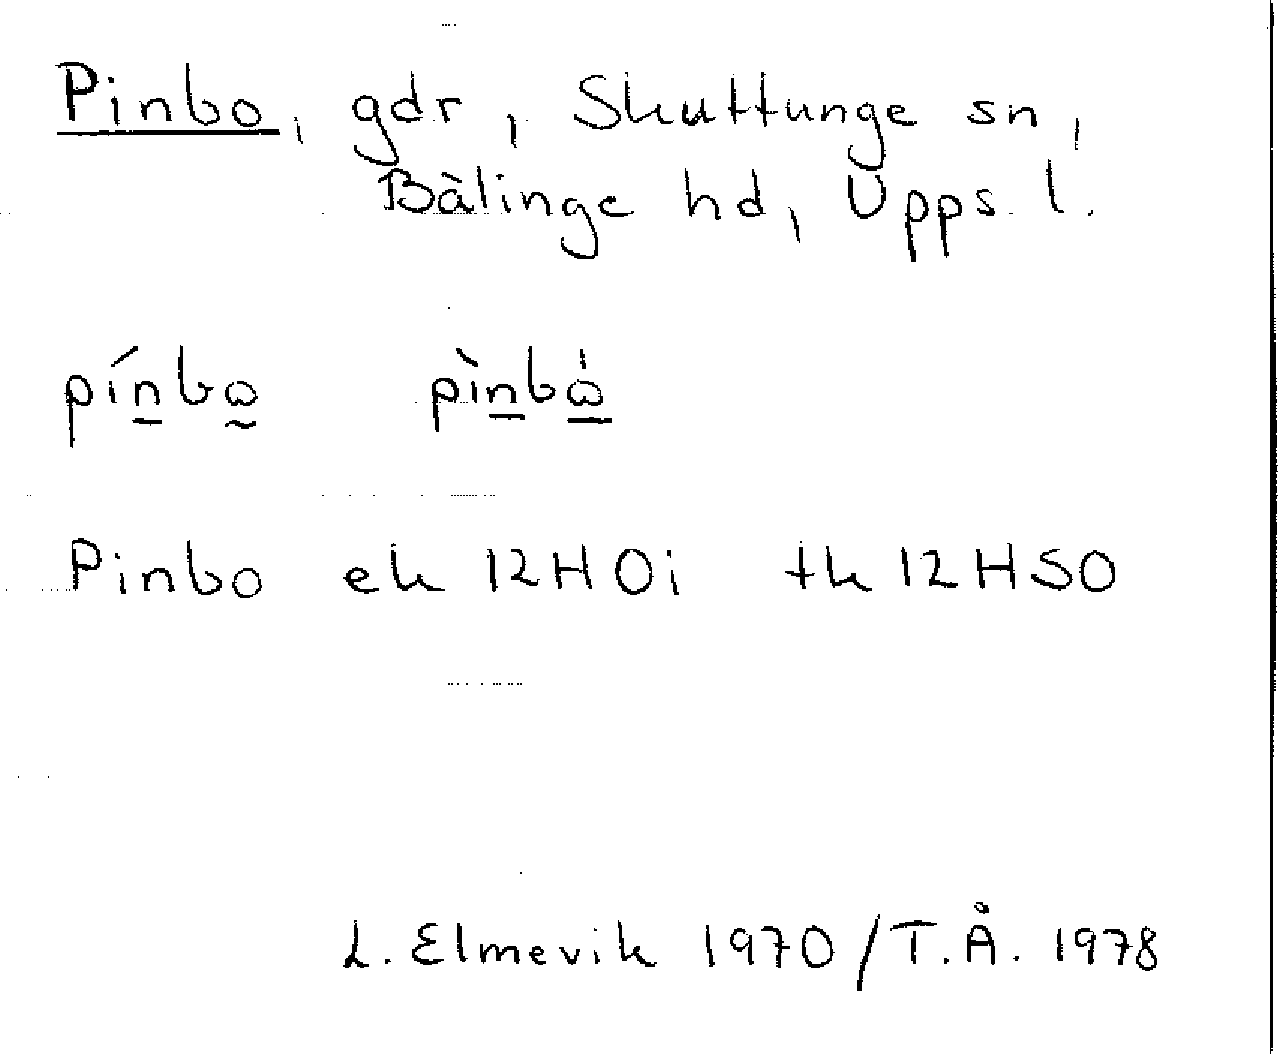 Pinbo, gdr, Skuttunge sn,
Bälinge hd, Upps. l.
pín̲bω̰ pìn̲bω̲̍
Pinbo ek 12H0i tk 12HSO
L. Elmevik 1970/T.Å. 1978